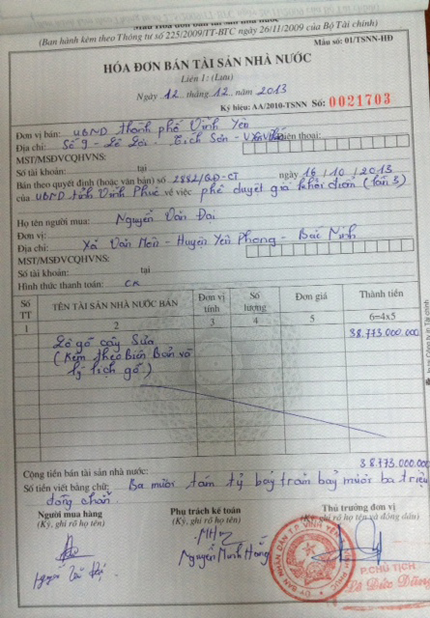 Mẫu Hóa đơn bán tài sản nhà nước
(Ban hành kèm theo Thông tư số 225/2009/TT-BTC ngày 26/11/2009 của Bộ Tài chính)
Mẫu số: 01/TSNN-HĐ
HÓA ĐƠN BÁN TÀI SẢN NHÀ NƯỚC
Liên 1: (Lưu)
Ngày 12 tháng 12 năm 2013
Ký hiệu: AA/2010-TSNN Số: 0021703
Đơn vị bán: UBND thành phố Vĩnh Yên
Địa chỉ: Số 9 - Lê Lợi - Tích Sơn - Điện thoại:
MST/MSDVCQHVNS:
Số tài khoản: tại
Bán theo quyết định (hoặc văn bản) số 2882/QĐ-CT ngày 16/10/2013
của UBND tỉnh Vĩnh Phúc về việc phê duyệt giá khởi điểm (lần 3)
Họ tên người mua: Nguyễn Văn Đại
Đơn vị:
Địa chỉ: Xã Văn Môn - Huyện Yên Phong - Bắc Ninh
MST/MSDVCQHVNS:
Số tài khoản: tại
Hình thức thanh toán: CK
Số TT TÊN TÀI SẢN NHÀ NƯỚC BÁN Đơn vị tính Số lượng Đơn giá Thành tiền
1 2 3 4 5 6=4x5
Lô gỗ cây Sưa 38.773.000.000
(Kèm theo Biên Bản và
lý lịch gỗ)
Cộng tiền bán tài sản nhà nước: 38.773.000.000
Số tiền viết bằng chữ: Ba mươi tám tỷ bảy trăm bảy mươi ba triệu
đồng chẵn
Người mua hàng Phụ trách kế toán Thủ trưởng đơn vị
(Ký, ghi rõ họ tên) (Ký, ghi rõ họ tên) (Ký, ghi rõ họ tên và đóng dấu)
Nguyễn Văn Đại Nguyễn Minh Hằng
P.CHỦ TỊCH
Lê Đức Dũng